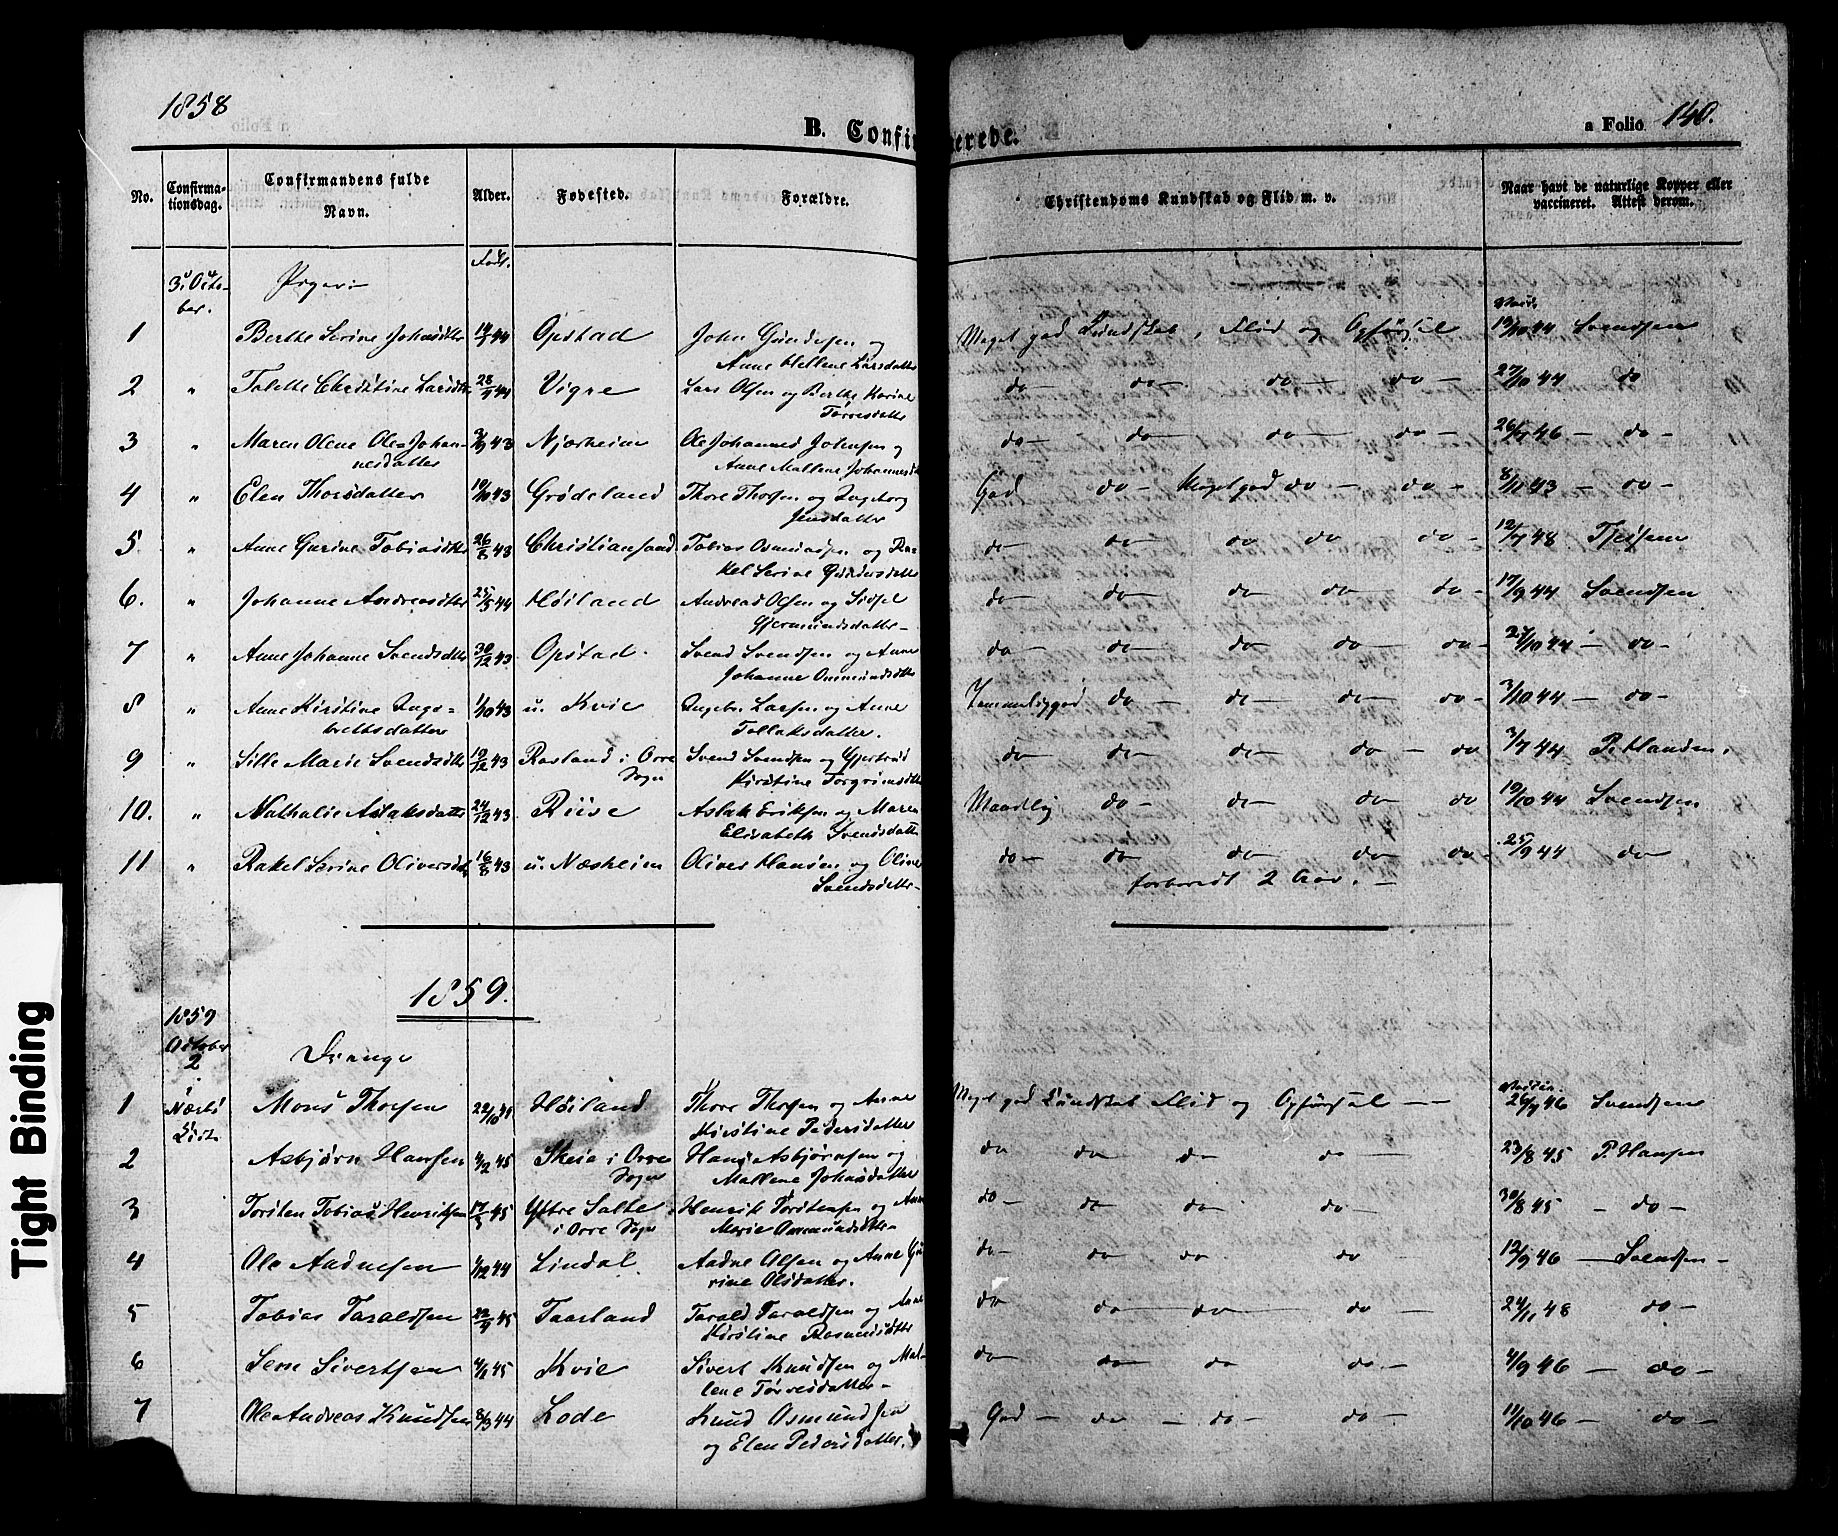 1858
B. Confir merede.
a Folio 140.
No. Confirma-tionsdag. Confirmandens fulde Navn. Alder. Fødested. Forældre. Christendoms Kundskab og Flid m. v. Naar havt de naturlige Kopper eller vaccineret. Attest derom.
Født.
3. Octo-ber. Piger
1 Berthe Serine Johnsdtter 44 Opstad John Gundersen og Meget god Kundskab, Flid og Opførsel 19/10 44 Svendsen
Anne Hellene Larsdatter
2 " Tolette Christine Larsdtr 28/4 44 Vigre Lars Olsen og Berthe Karine do - do - do - do - 27/10 44 do
Tørresdatter
3 " Maren Olene Ole Johan- 43 Njærheim Ole Johannes Johnsen og do - do - do - do - 26/7 46 - do -
nesdatter Anne Mallene Johannesdtr
4 " Elen Thorsdatter 19/10 43 Grødeland Thore Thorsen og Ingeborg God do - Meget god do - do - 8/11 43 - do -
Jensdatter
5. " Anne Gurine Tobiasdtter 26/8 43 Christiansand Tobias Osmundsen og Ra- do - do - do do do - 12/7 48 Tjetsem
kel Serine Gundersdatter
6. " Johanne Andreasdtter 25/5 44 Høiland Andreas Olsen og Sidsel do - do - do do - do - 17/9 44 Svendsen
Gjermundsdatter-
7 " Anne Johanne Svendsdtter 30/12 43 Opstad. Svend Svendsen og Anne do - do - do do do - 27/10 44 - do -
Johanne Ommundsdtter
8 " Anne Kirstine Inge- 1/10 43 u. Kvie Ingebr. Larsen og Anne Temmeliggod do - do - do - do - 3/10 44 - do -
bretsdatter Tollaksdatter.
9 " Sille Marie Svendsdtter 19/12 43 Rosland i Orre Svend Svendsen og Gjertrud do - do - do - do - do 3/7 44
Sogn Kirstine Torgrimsdtter
10. " Nathalie Aslaksdatter 24/12 43 Riise Aslak Eriksen og Maren Maadelig do - do - do do 19/10 44 Svendsen
Elisabeth Svendsdatter
11 " Rakel Serine Oliversdtr 16/8 43 u. Næsheim Oliver Hansen og Olive do - do do - do - do - 25/9 44 do
Svendsdtter-
forberedt 2 Aar. -
1859.
1859
October
2
Drenge
1 i Nærbø Mons Thorsen 22/10 44 Høiland Thore Thorsen og Anne Meget god Kundskab Flid og Opførsel - - 26/7 46 Svendsen
Kirke Kirstine Pedersdatter
2 Asbjørn Hansen 4/2 45 Skeie i Orre Hans Asbjørnsen og do do - do - do - 23/8 45 P. Hansen
Sogn Mallene Johnsdatter
3 Torsten Tobias Henriksen 45 Yttre Salte Henrik Torstensen og Anne do - do - do do - 30/8 45 - do -
i Orre Sogn Marie Ommundsdtter
4 Ole Aadnesen 4/12 44 Lindal Aadne Olsen og Anne Gu- do - do do - do - 12/9 46 - Svendsen -
rine Olsdatter.
5 Tobias Taraldsen 22/4 45 Taarland Tarald Taraldsen og Anne do do - do - do - 24/11 48 do -
Kirstine Rasmusdtter
6 Sem Sivertsen 4/1 45 Kvie Sivert Knudsen og Mal- do do - do do - 4/9 46 - do -
lene Tørresdatter-
7 Ole Andreas Knudsen 8/9 44 Lode Knud Osmundsen God - do - do - do - 11/10 46 - do -
og Elen Pedersdatter.
Tight Binding